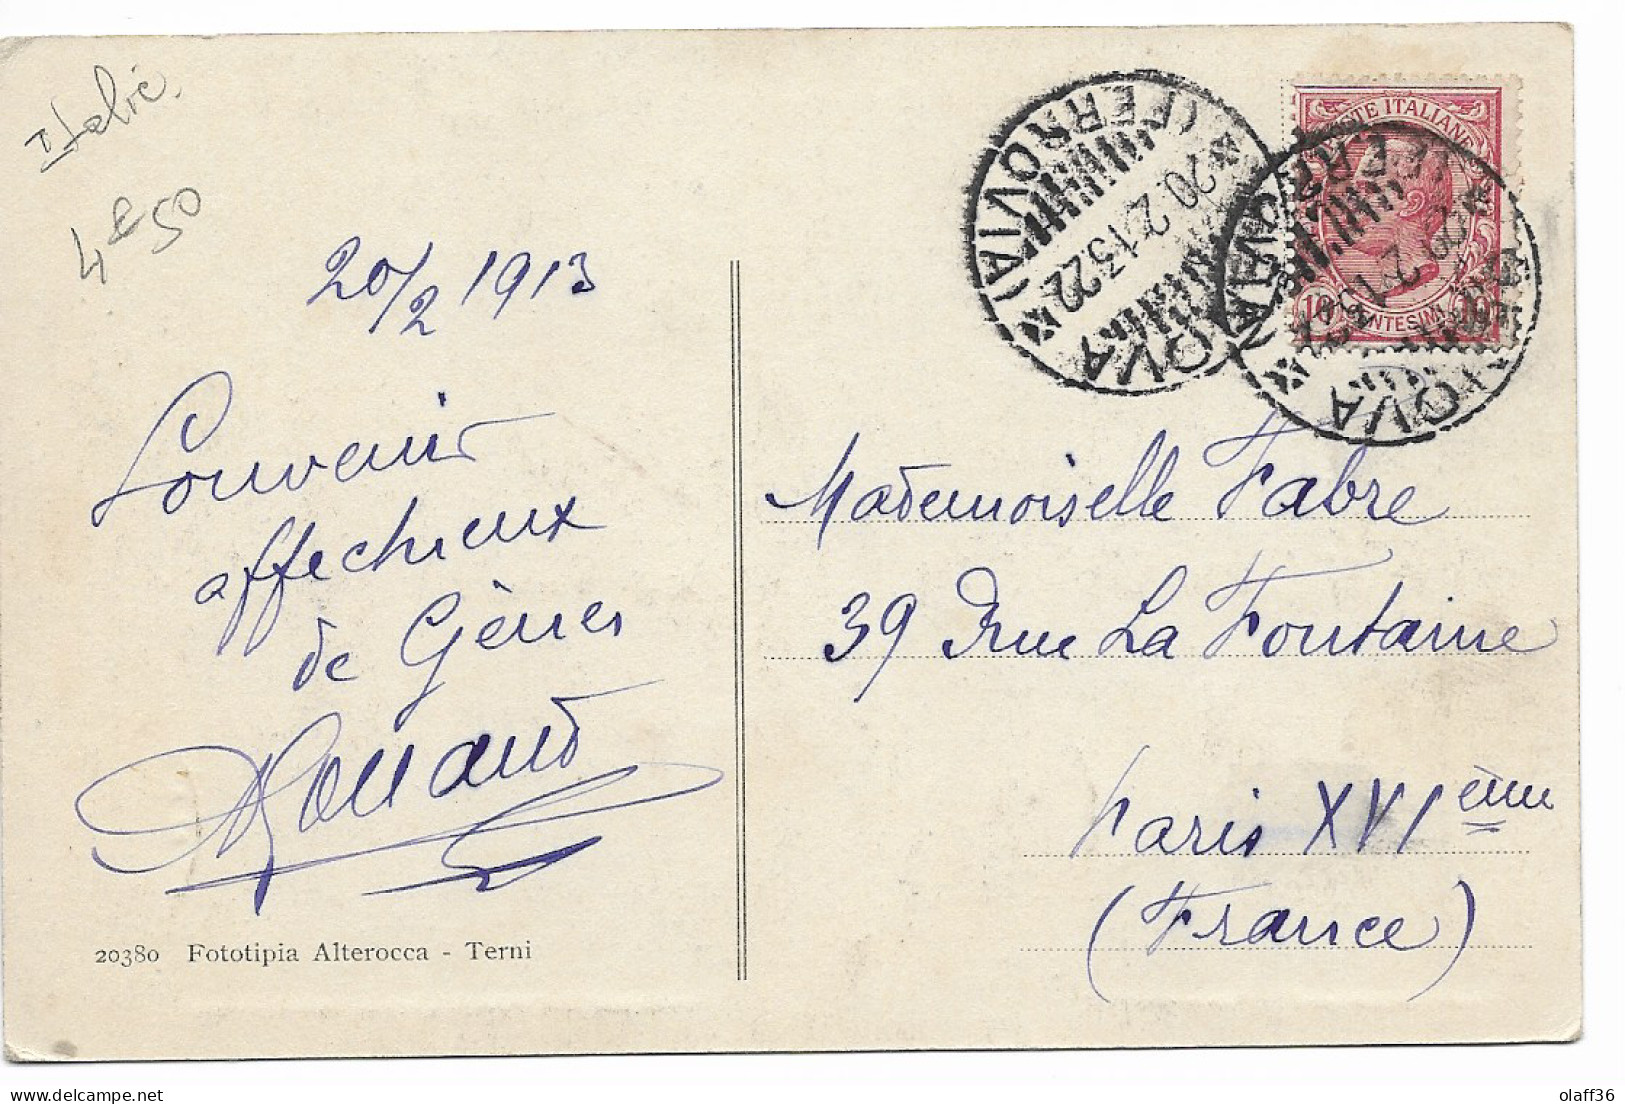 Italie
4€50
20/2 1913
Souvenir
affectueux
de Gênes
Rolland
20380 Fototipia Alterocca - Terni
(FERROVIA)
20.2.13.22
POSTE ITALIANE
10 CENTESIMI 10
Mademoiselle Fabre
39 Rue La Fontaine
Paris XVIème
(France)
olaff36